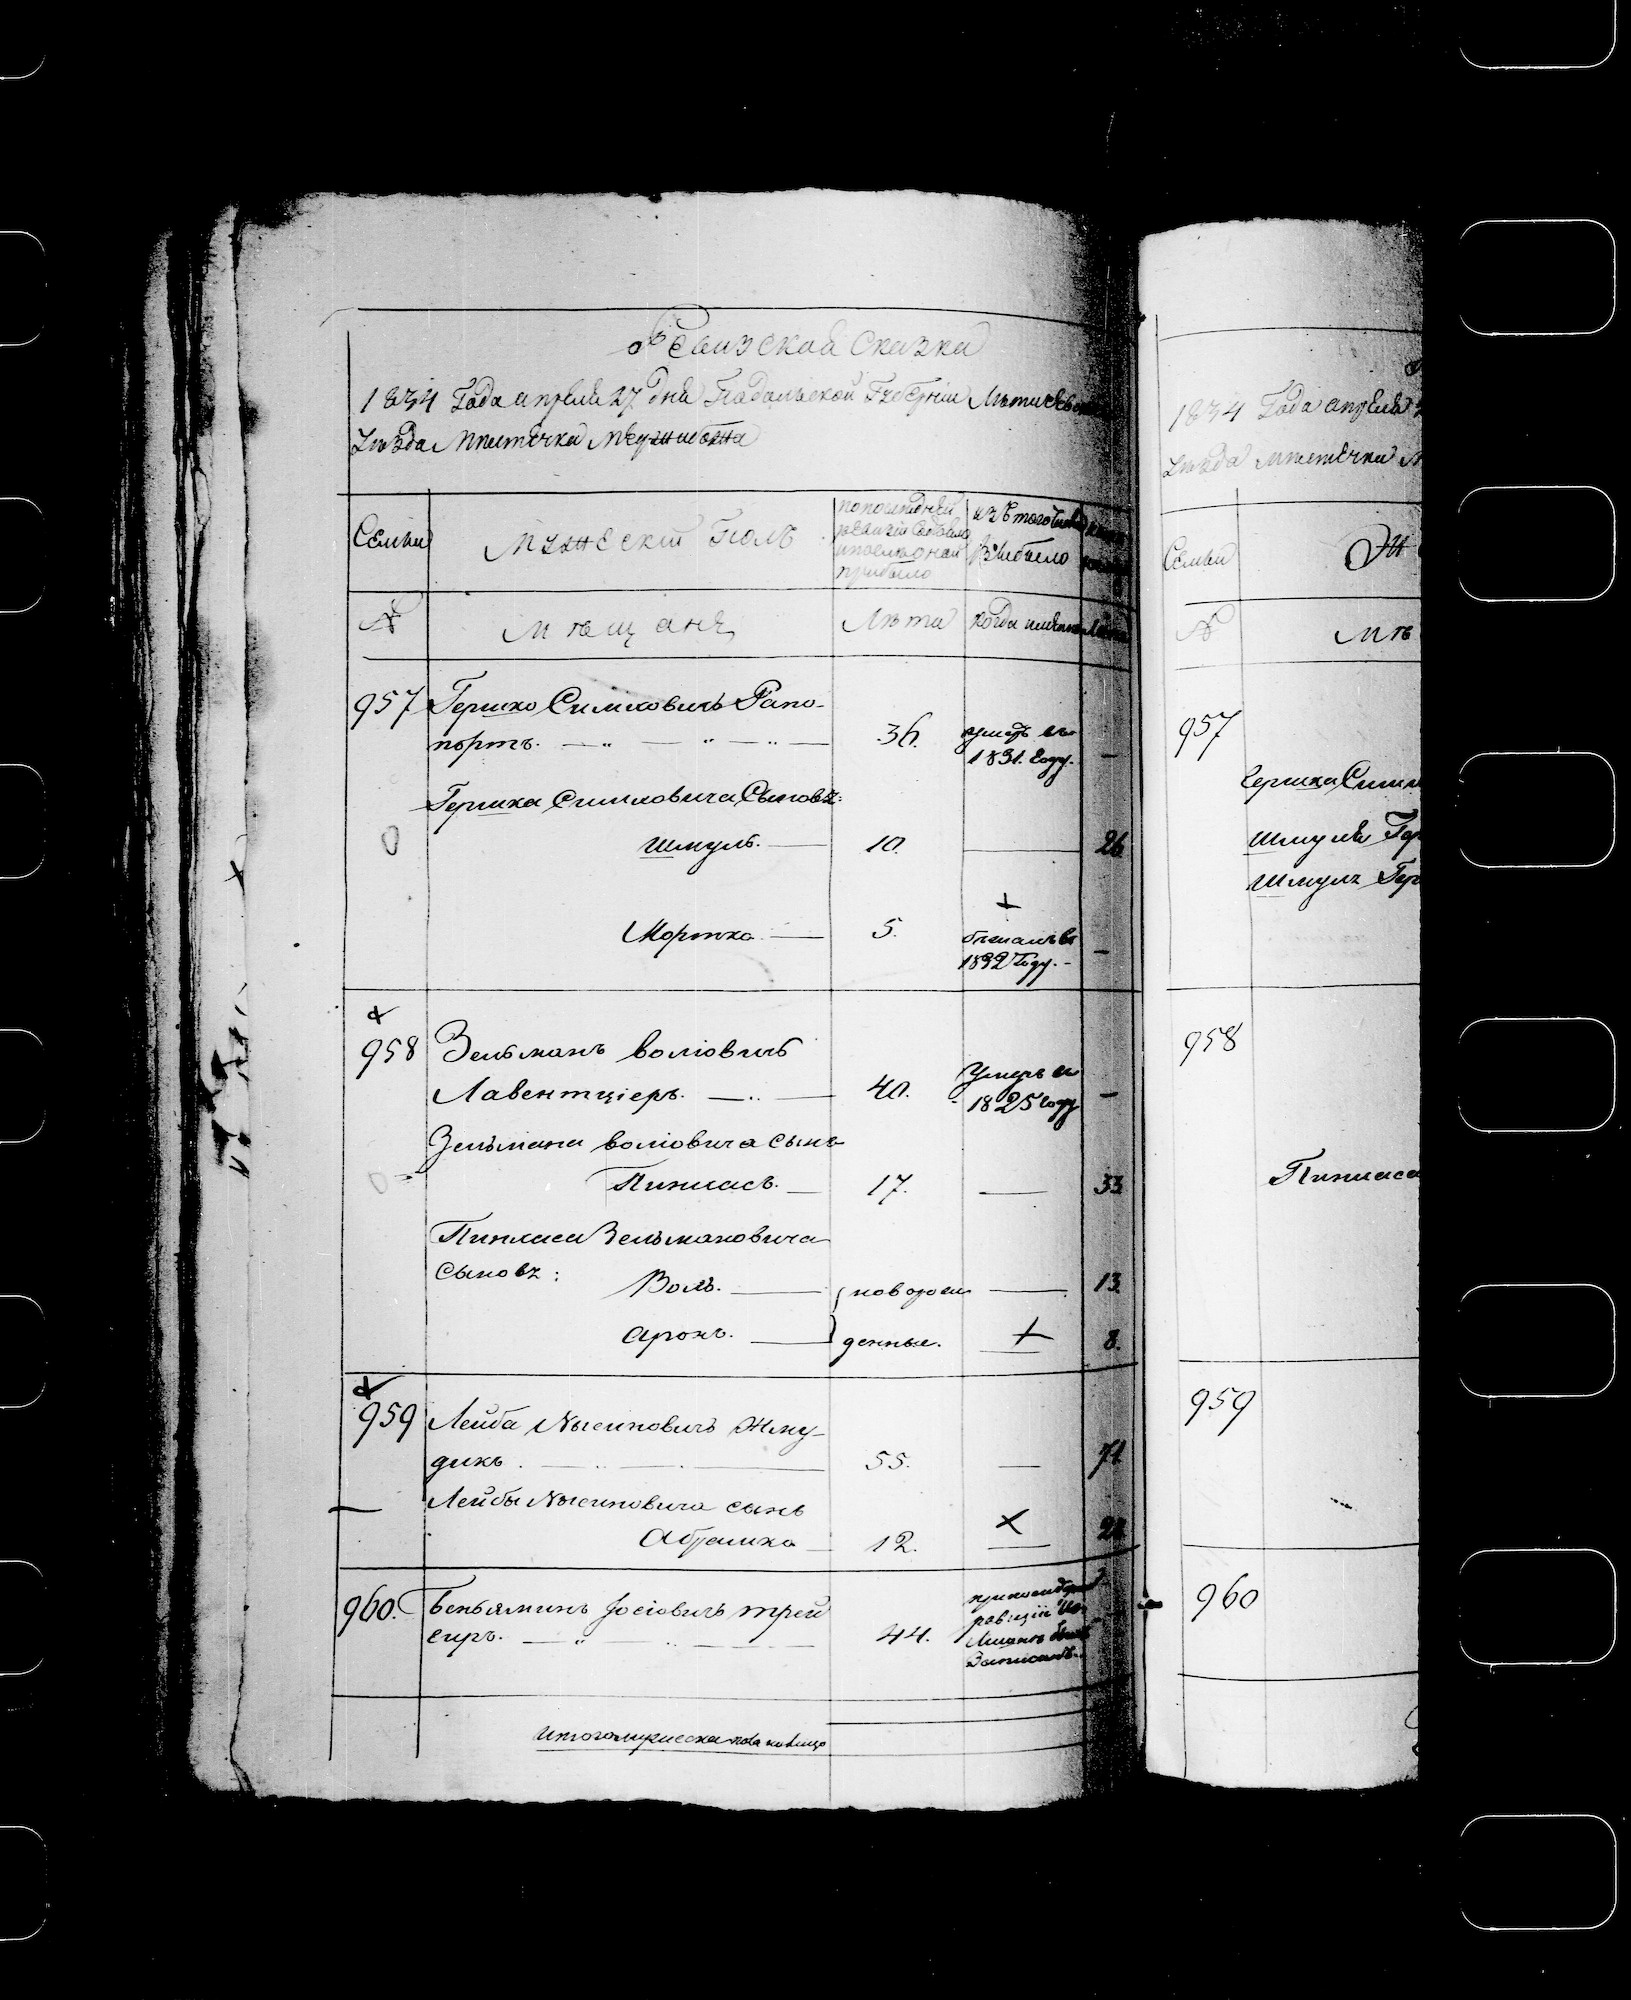 Ревизская Сказка
1834 Года апреля 27 дня Подольской Губернии Летичевского
Уезда Местечка Меджибожа
Семьи
Мужеский Полъ
по последней
ревизии состояло
и после оной
прибыло
изъ того числа
выбыло
№
Мещане
Лета
когда именно
957
Гершко Симховичъ Рапо-
портъ.
36.
умеръ въ
1831. году.
—
Гершка Симховича Сыновъ:
Шмуль.
10.
—
26
Мортко
5.
+
бежалъ въ
1832 Году.
—
958
Зельманъ Волiовичъ
Лавентцiеръ.
40.
Умеръ въ
1825 году
—
Зельмана Волiовича сынъ
Пинхасъ.
17.
—
33
Пинхаса Зельмановича
Сыновъ:
Воль.
новорож
—
13.
Аронъ.
денные.
+
8.
959
Лейба Нысиновичъ Жму-
дикъ.
55.
—
71
Лейбы Нысиновича сынъ
Абрамко
12.
+
28
960.
Беньяминъ Iосiовичъ Трей
сиръ.
44.
ревизiи
Записанъ.
Итого мужеска пола на лицо
1834 Года апреля
Уезда Местечка М
Семьи
Ж
№
Ме
957
Гершка Симх
Шмуля Гер
Шмула Гер
958
Пинхаса
959
960